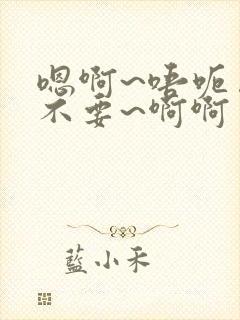 嗯啊~唔呃
不要~啊啊
藍小禾